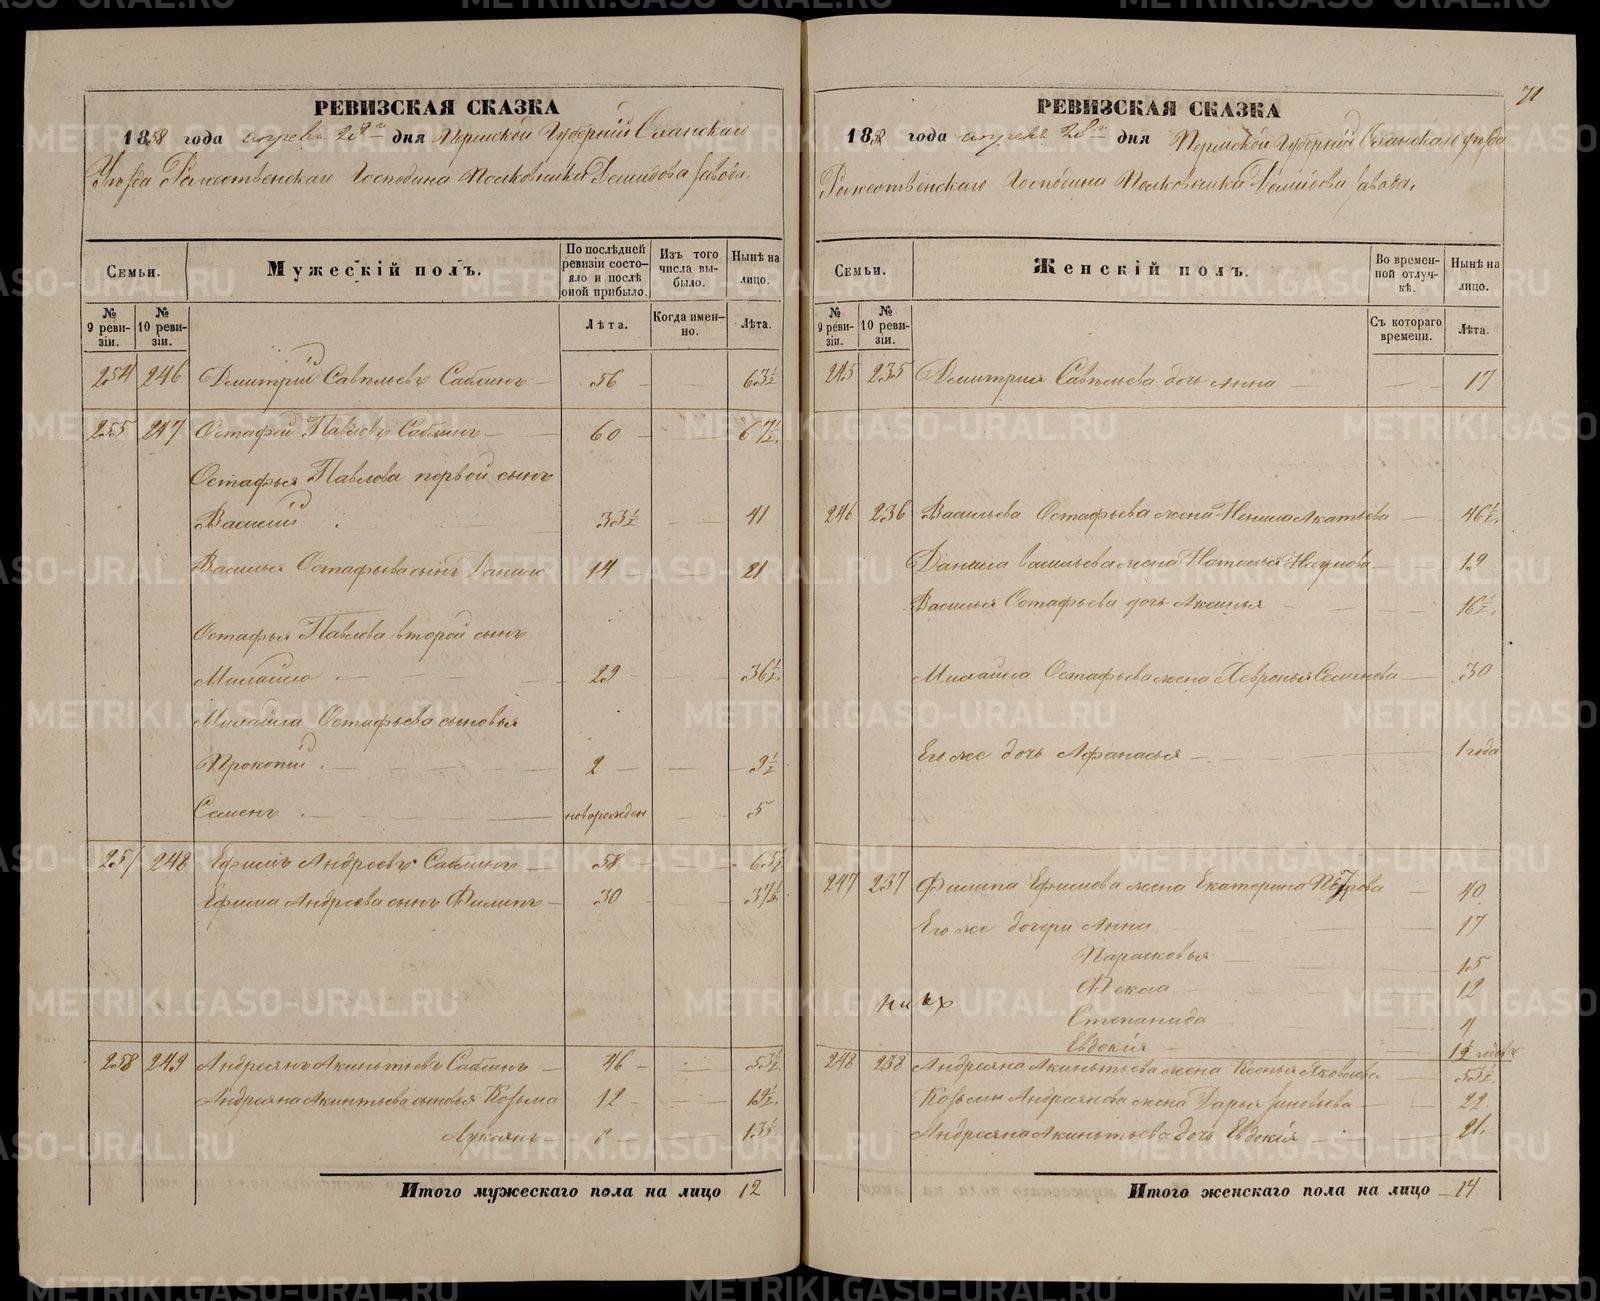 РЕВИЗСКАЯ СКАЗКА
1858 года апреля 28го дня Пермской Губернии Оханскаго
Уезда Рожественскаго Господина Полковника Демидова завода.
Семьи.
Мужескій полъ.
По послѣдней ревизіи состояло и послѣ оной прибыло.
Изъ того числа выбыло.
Нынѣ на лицо.
№ 9 ревизіи.
№ 10 ревизіи.
Лѣта.
Когда именно.
Лѣта.
254 246 Дмитрий Савельевъ Саблинъ 56 63½
255 247 Остафей Павловъ Саблинъ 60 67½
Остафья Павлова первой сынъ
Василий 33½ 41
Василья Остафьева сынъ Данило 14 21
Остафья Павлова второй сынъ
Михайло 29 36½
Михайла Остафьева сыновья
Прокопий 2 9½
Семенъ новорожден 5
257 248 Ефимъ Андреевъ Саблинъ 58 65½
Ефима Андреева сынъ Филипъ 30 37½
258 249 Андреянъ Акинтьевъ Саблинъ 46 53½
Андреяна Акинтьева сыновья Козьма 12 19½
Лукоянъ 6 13½
Итого мужескаго пола на лицо 12
71
РЕВИЗСКАЯ СКАЗКА
1858 года апреля 28го дня Пермской Губернии Оханскаго уезда
Рожественскаго Господина Полковника Демидова завода.
Семьи.
Женскій полъ.
Во временной отлучкѣ.
Нынѣ на лицо.
№ 9 ревизіи.
№ 10 ревизіи.
Съ котораго времени.
Лѣта.
245 235 Дмитрия Савельева дочь Анна 17
246 236 Васильева Остафьева жена Ненила Акатьева 46½
Данила Васильева жена Наталья Наумова 19
Василья Остафьева дочь Аксинья 16½
Михайла Остафьева жена Хевронья Семенова 30
Его же дочь Афанасья 1 года
247 237 Филипа Ефимова жена Екатерина Петрова 40
Его же дочери Анна 17
Парасковья 15
Фекла 12
Степанида 4
Евдокия 1½ годовъ
248 238 Андреяна Акинтьева жена Ксенья Яковлева 53½
Козьмы Андреянова жена Дарья Зиновьева 22
Андреяна Акинтьева дочь Евдокия 21
Итого женскаго пола на лицо 14
METRIKI.GASO-URAL.RU